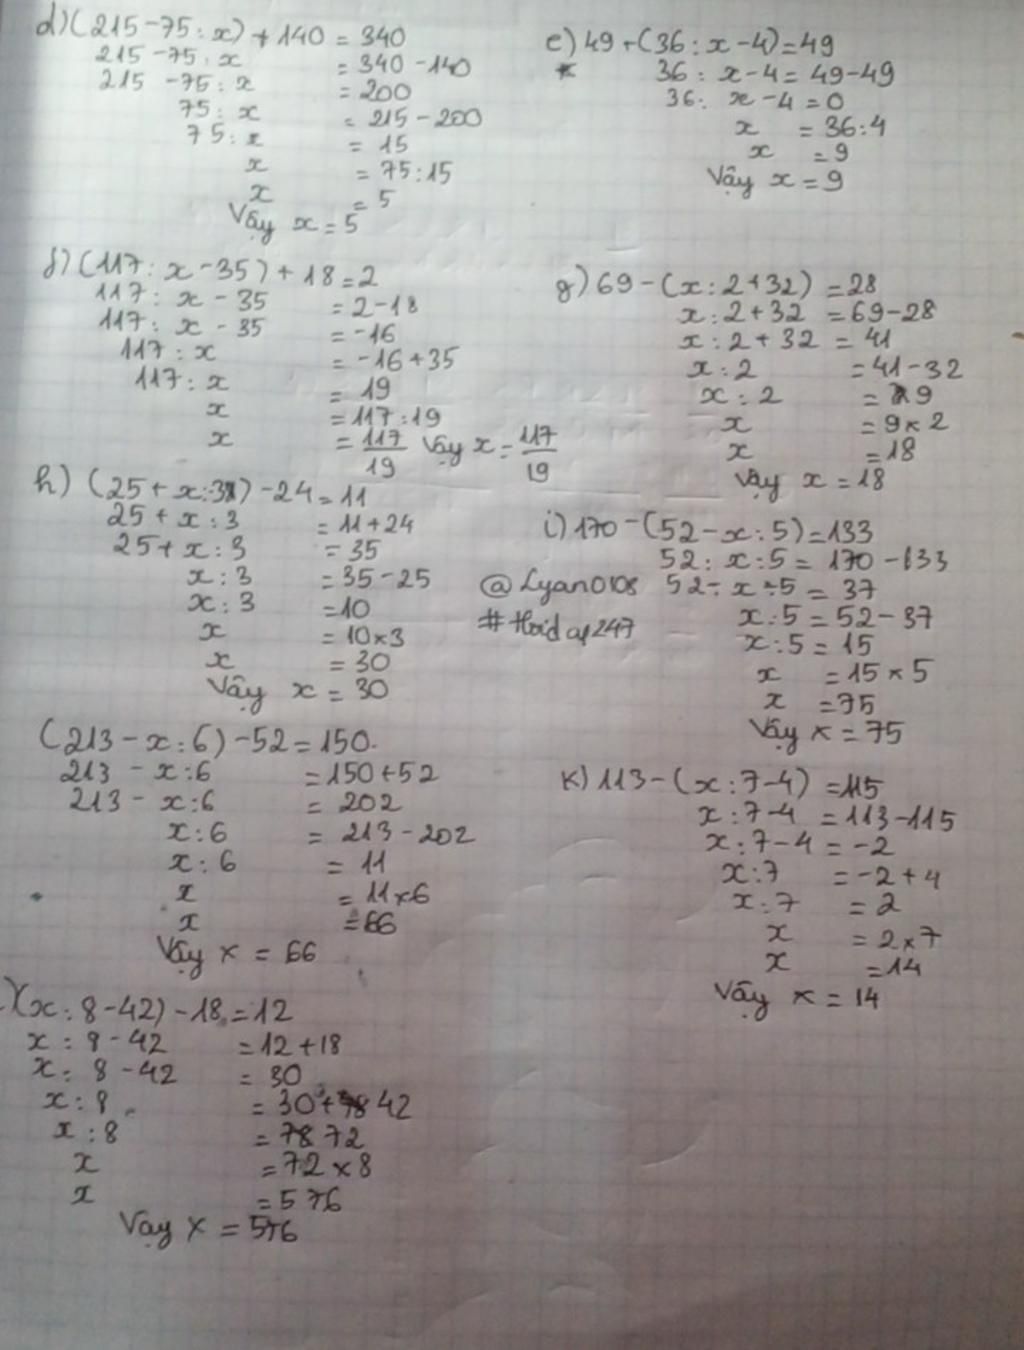 d) (215 - 75 : x) + 140 = 340
215 - 75 : x = 340 - 140
215 - 75 : x = 200
75 : x = 215 - 200
75 : x = 15
x = 75 : 15
x = 5
Vậy x = 5
e) 49 + (36 : x - 4) = 49
36 : x - 4 = 49 - 49
36 : x - 4 = 0
x = 36 : 4
x = 9
Vậy x = 9
f) (117 : x - 35) + 18 = 2
117 : x - 35 = 2 - 18
117 : x - 35 = -16
117 : x = -16 + 35
117 : x = 19
x = 117 : 19
x = 117/19 Vậy x = 117/19
g) 69 - (x : 2 + 32) = 28
x : 2 + 32 = 69 - 28
x : 2 + 32 = 41
x : 2 = 41 - 32
x : 2 = 9
x = 9 × 2
x = 18
Vậy x = 18
h) (25 + x : 3) - 24 = 11
25 + x : 3 = 11 + 24
25 + x : 3 = 35
x : 3 = 35 - 25
x : 3 = 10
x = 10 × 3
x = 30
Vậy x = 30
i) 170 - (52 - x : 5) = 133
52 : x : 5 = 170 - 133
52 - x : 5 = 37
x : 5 = 52 - 37
x : 5 = 15
x = 15 × 5
x = 75
Vậy x = 75
@Lyan0108
#Hoidap247
(213 - x : 6) - 52 = 150
213 - x : 6 = 150 + 52
213 - x : 6 = 202
x : 6 = 213 - 202
x : 6 = 11
x = 11 × 6
x = 66
Vậy x = 66
k) 113 - (x : 7 - 4) = 115
x : 7 - 4 = 113 - 115
x : 7 - 4 = -2
x : 7 = -2 + 4
x : 7 = 2
x = 2 × 7
x = 14
Vậy x = 14
(x : 8 - 42) - 18 = 12
x : 8 - 42 = 12 + 18
x : 8 - 42 = 30
x : 8 = 30 + 42
x : 8 = 72
x = 72 × 8
x = 576
Vậy x = 576